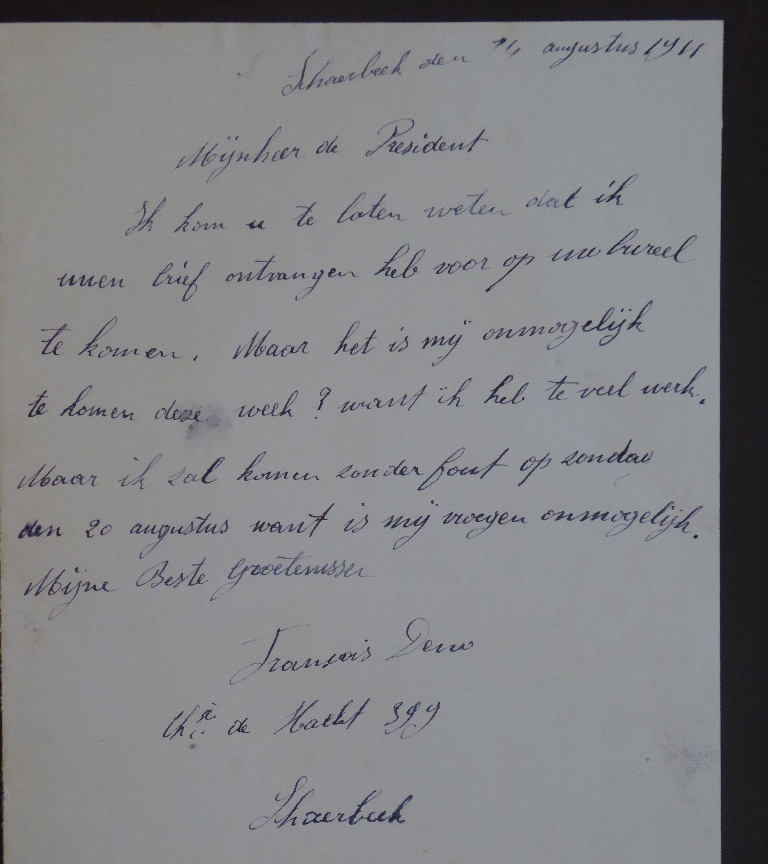 Schaerbeek den 14 augustus 1911
Mijnheer de President
Ik kom u te laten weten dat ik
uwen brief ontvangen heb voor op uw bureel
te komen. Maar het is mij onmogelijk
te komen deze week ? want ik heb te veel werk.
Maar ik zal komen zonder fout op zondag
den 20 augustus want is mij vroegen onmogelijk.
Mijne Beste Groetenissen
François
Chée de Hacht 399
Schaerbeek